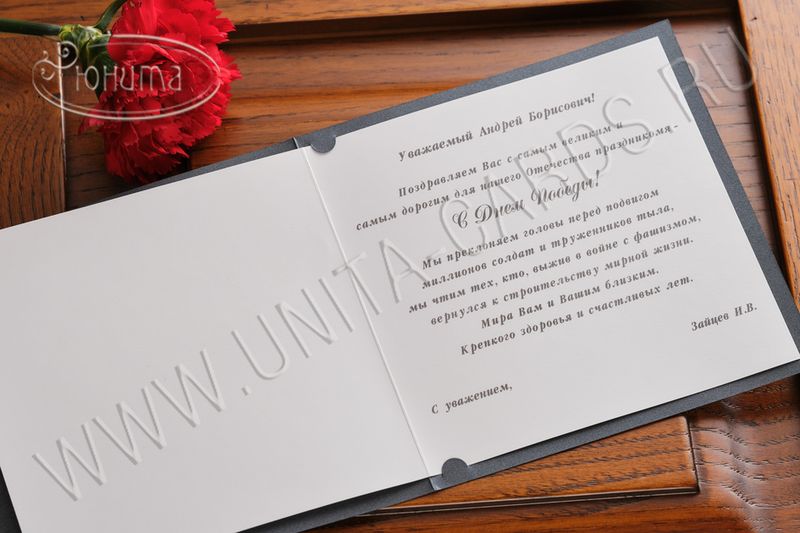 Юнита
Уважаемый Андрей Борисович!
Поздравляем Вас с самым великим и
самым дорогим для нашего Отечества праздником -
С Днем Победы!
Мы преклоняем головы перед подвигом
миллионов солдат и тружеников тыла,
мы чтим тех, кто, выжив в войне с фашизмом,
вернулся к строительству мирной жизни.
Мира Вам и Вашим близким.
Крепкого здоровья и счастливых лет.
Зайцев И.В.
С уважением,
WWW.UNITA-CARDS.RU